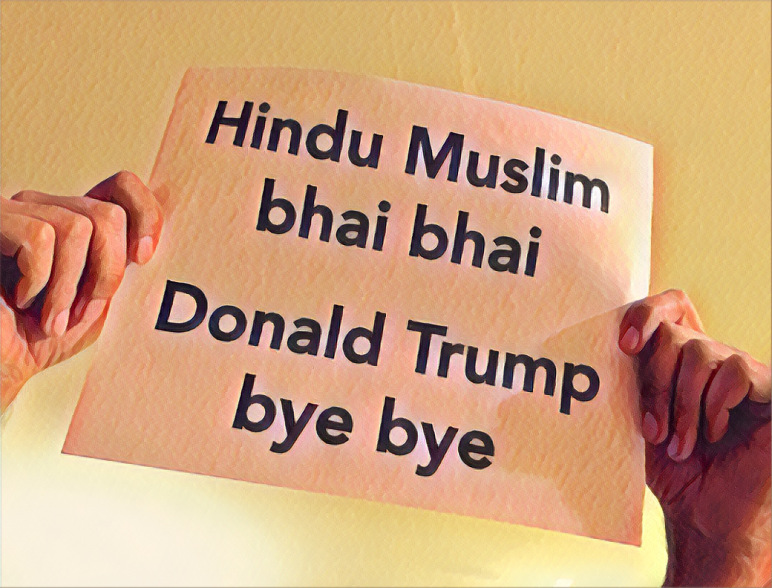 Hindu Muslim
bhai bhai
Donald Trump
bye bye